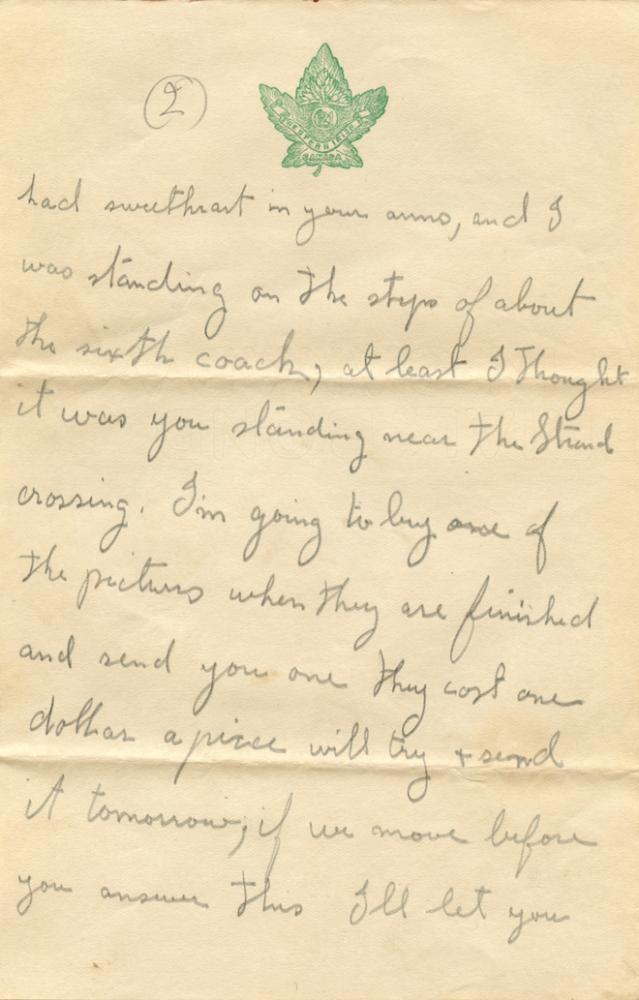 2
121
WESTERN IRISH
CANADA
had sweethart in your arms, and I
was standing on the steps of about
the sixth coach, at least I thought
it was you standing near the Strand
crossing. I'm going to buy one of
the picturs when they are finished
and send you one they cost one
dollar a piece will try + send
it tomorrow, if we move before
you answer this I'll let you